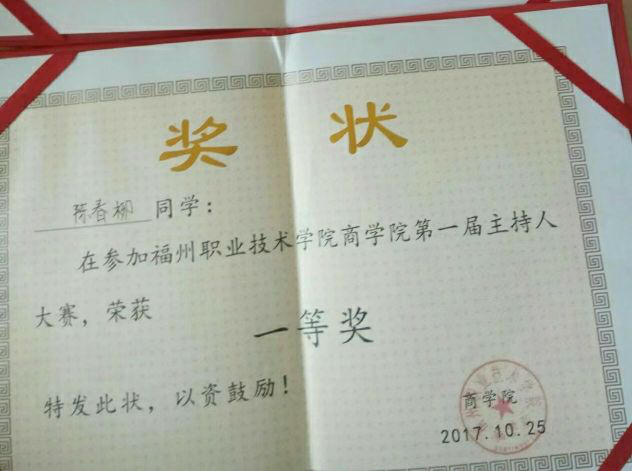 奖状
陈春柳同学：
在参加福州职业技术学院商学院第一届主持人
大赛，荣获
一等奖
特发此状，以资鼓励！
商学院
2017.10.25